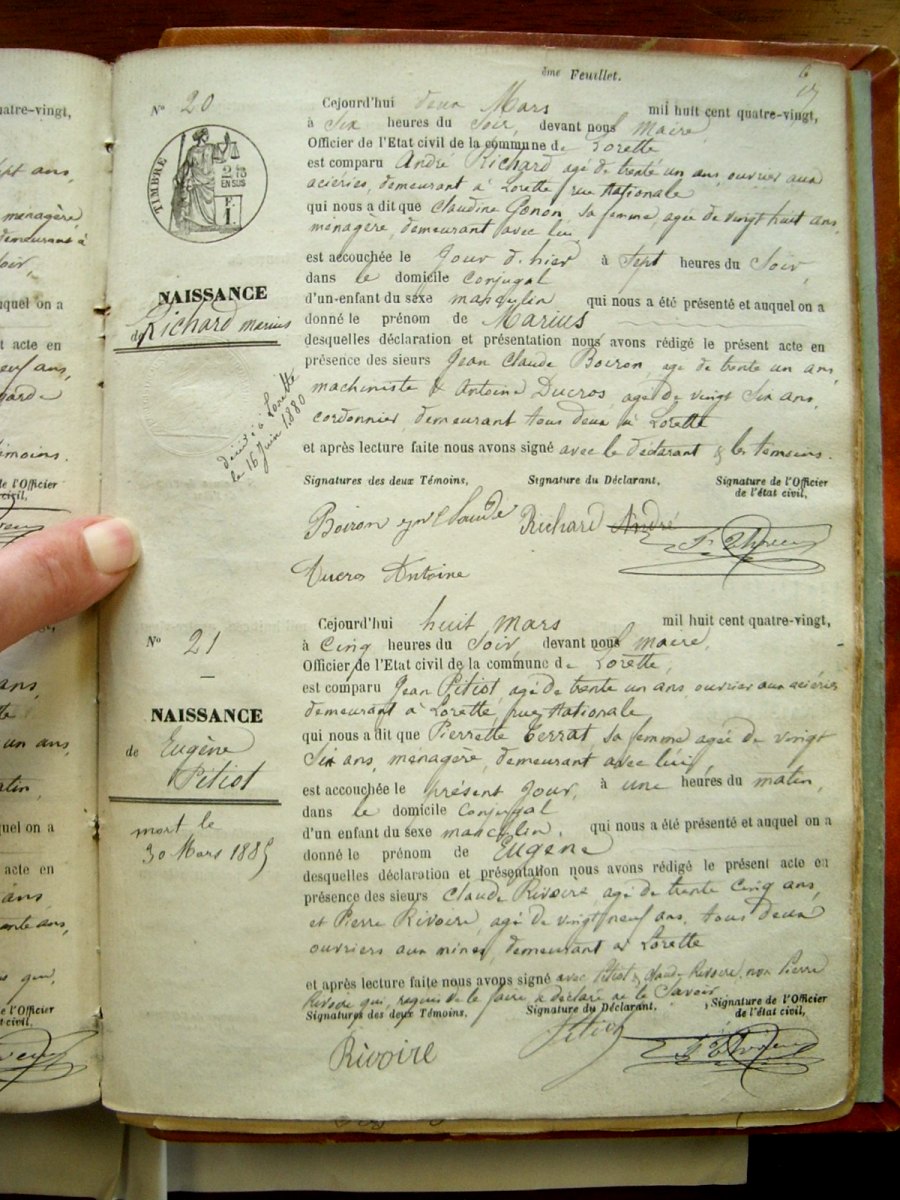 ème Feuillet.
6
17
N° 20
TIMBRE
2/10
EN SUS
F.
1.
NAISSANCE
de Richard marius
décédé à Lorette
le 16 Juin 1880
Cejourd'hui deux Mars mil huit cent quatre-vingt,
à Six heures du Soir, devant nous Maire
Officier de l'Etat civil de la commune de Lorette
est comparu André Richard agé de trente un ans, ouvrier aux
aciéries, demeurant à Lorette, rue Nationale
qui nous a dit que Claudine Gonon, sa femme, agée de vingt huit ans,
ménagère, demeurant avec lui
est accouchée le Jour d'hier à Sept heures du Soir,
dans le domicile conjugal
d'un enfant du sexe masculin qui nous a été présenté et auquel on a
donné le prénom de Marius
desquelles déclaration et présentation nous avons rédigé le présent acte en
présence des sieurs Jean Claude Boiron, agé de trente un ans,
machiniste & Antoine Ducros, agé de vingt Six ans,
cordonnier, demeurant tous deux à Lorette
et après lecture faite nous avons signé avec le déclarant & les témoins.
Signatures des deux Témoins, Signature du Déclarant, Signature de l'Officier
de l'état civil,
Boiron Claude Richard André
Ducros Antoine
N° 21
NAISSANCE
de Eugène
Pitiot
mort le
30 Mars 1885
Cejourd'hui huit Mars mil huit cent quatre-vingt,
à Cinq heures du Soir, devant nous Maire,
Officier de l'Etat civil de la commune de Lorette,
est comparu Jean Pitiot, agé de trente un ans ouvrier aux aciéries
demeurant à Lorette, rue Nationale
qui nous a dit que Pierrette Terrat, sa femme agée de vingt
Six ans, ménagère, demeurant avec lui,
est accouchée le présent Jour, à une heures du matin,
dans le domicile conjugal
d'un enfant du sexe masculin, qui nous a été présenté et auquel on a
donné le prénom de Eugène
desquelles déclaration et présentation nous avons rédigé le présent acte en
présence des sieurs Claude Rivoire, agé de trente Cinq ans,
et Pierre Rivoire, agé de vingt neuf ans, tous deux
ouvriers aux mines, demeurant à Lorette
et après lecture faite nous avons signé avec Pitiot & Claude Rivoire, non Pierre
Rivoire qui, requis de le faire a déclaré ne le Savoir
Signatures des deux Témoins, Signature du Déclarant, Signature de l'Officier
de l'état civil,
Rivoire Pitiot